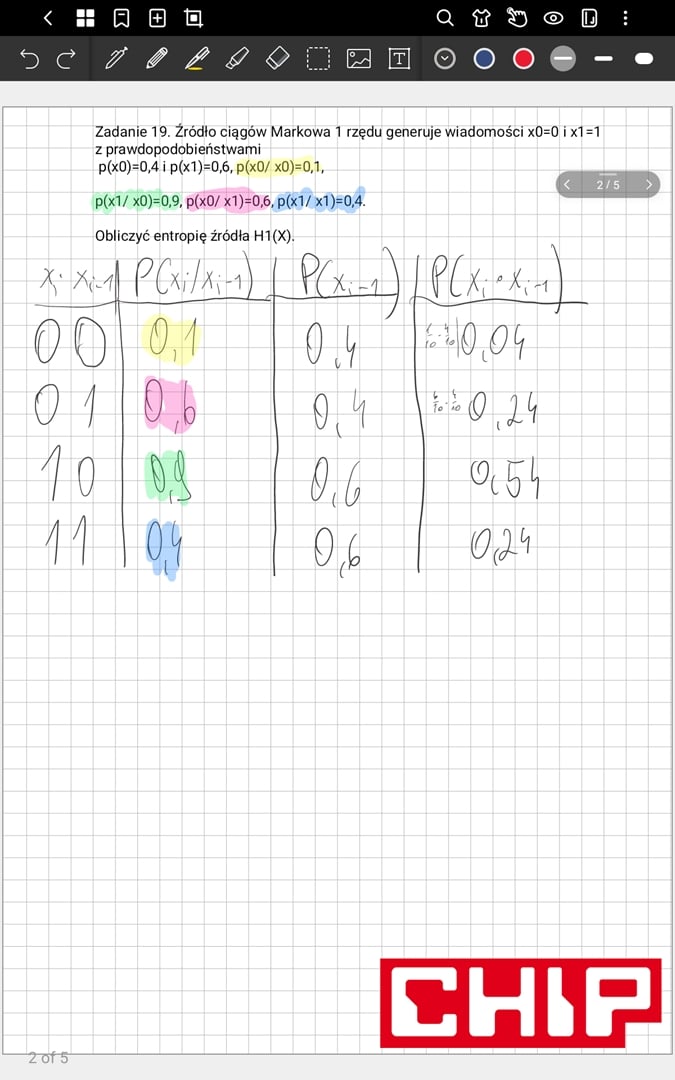 2/5
Zadanie 19. Źródło ciągów Markowa 1 rzędu generuje wiadomości x0=0 i x1=1
z prawdopodobieństwami
p(x0)=0,4 i p(x1)=0,6, p(x0/ x0)=0,1,
p(x1/ x0)=0,9, p(x0/ x1)=0,6, p(x1/ x1)=0,4.
Obliczyć entropię źródła H1(X).
Xi Xi-1 P(Xi/Xi-1) P(Xi-1) P(Xi∘Xi-1)
0 0 0,1 0,4 0,04
0 1 0,6 0,4 0,24
1 0 0,9 0,6 0,54
1 1 0,4 0,6 0,24
CHIP
2 of 5